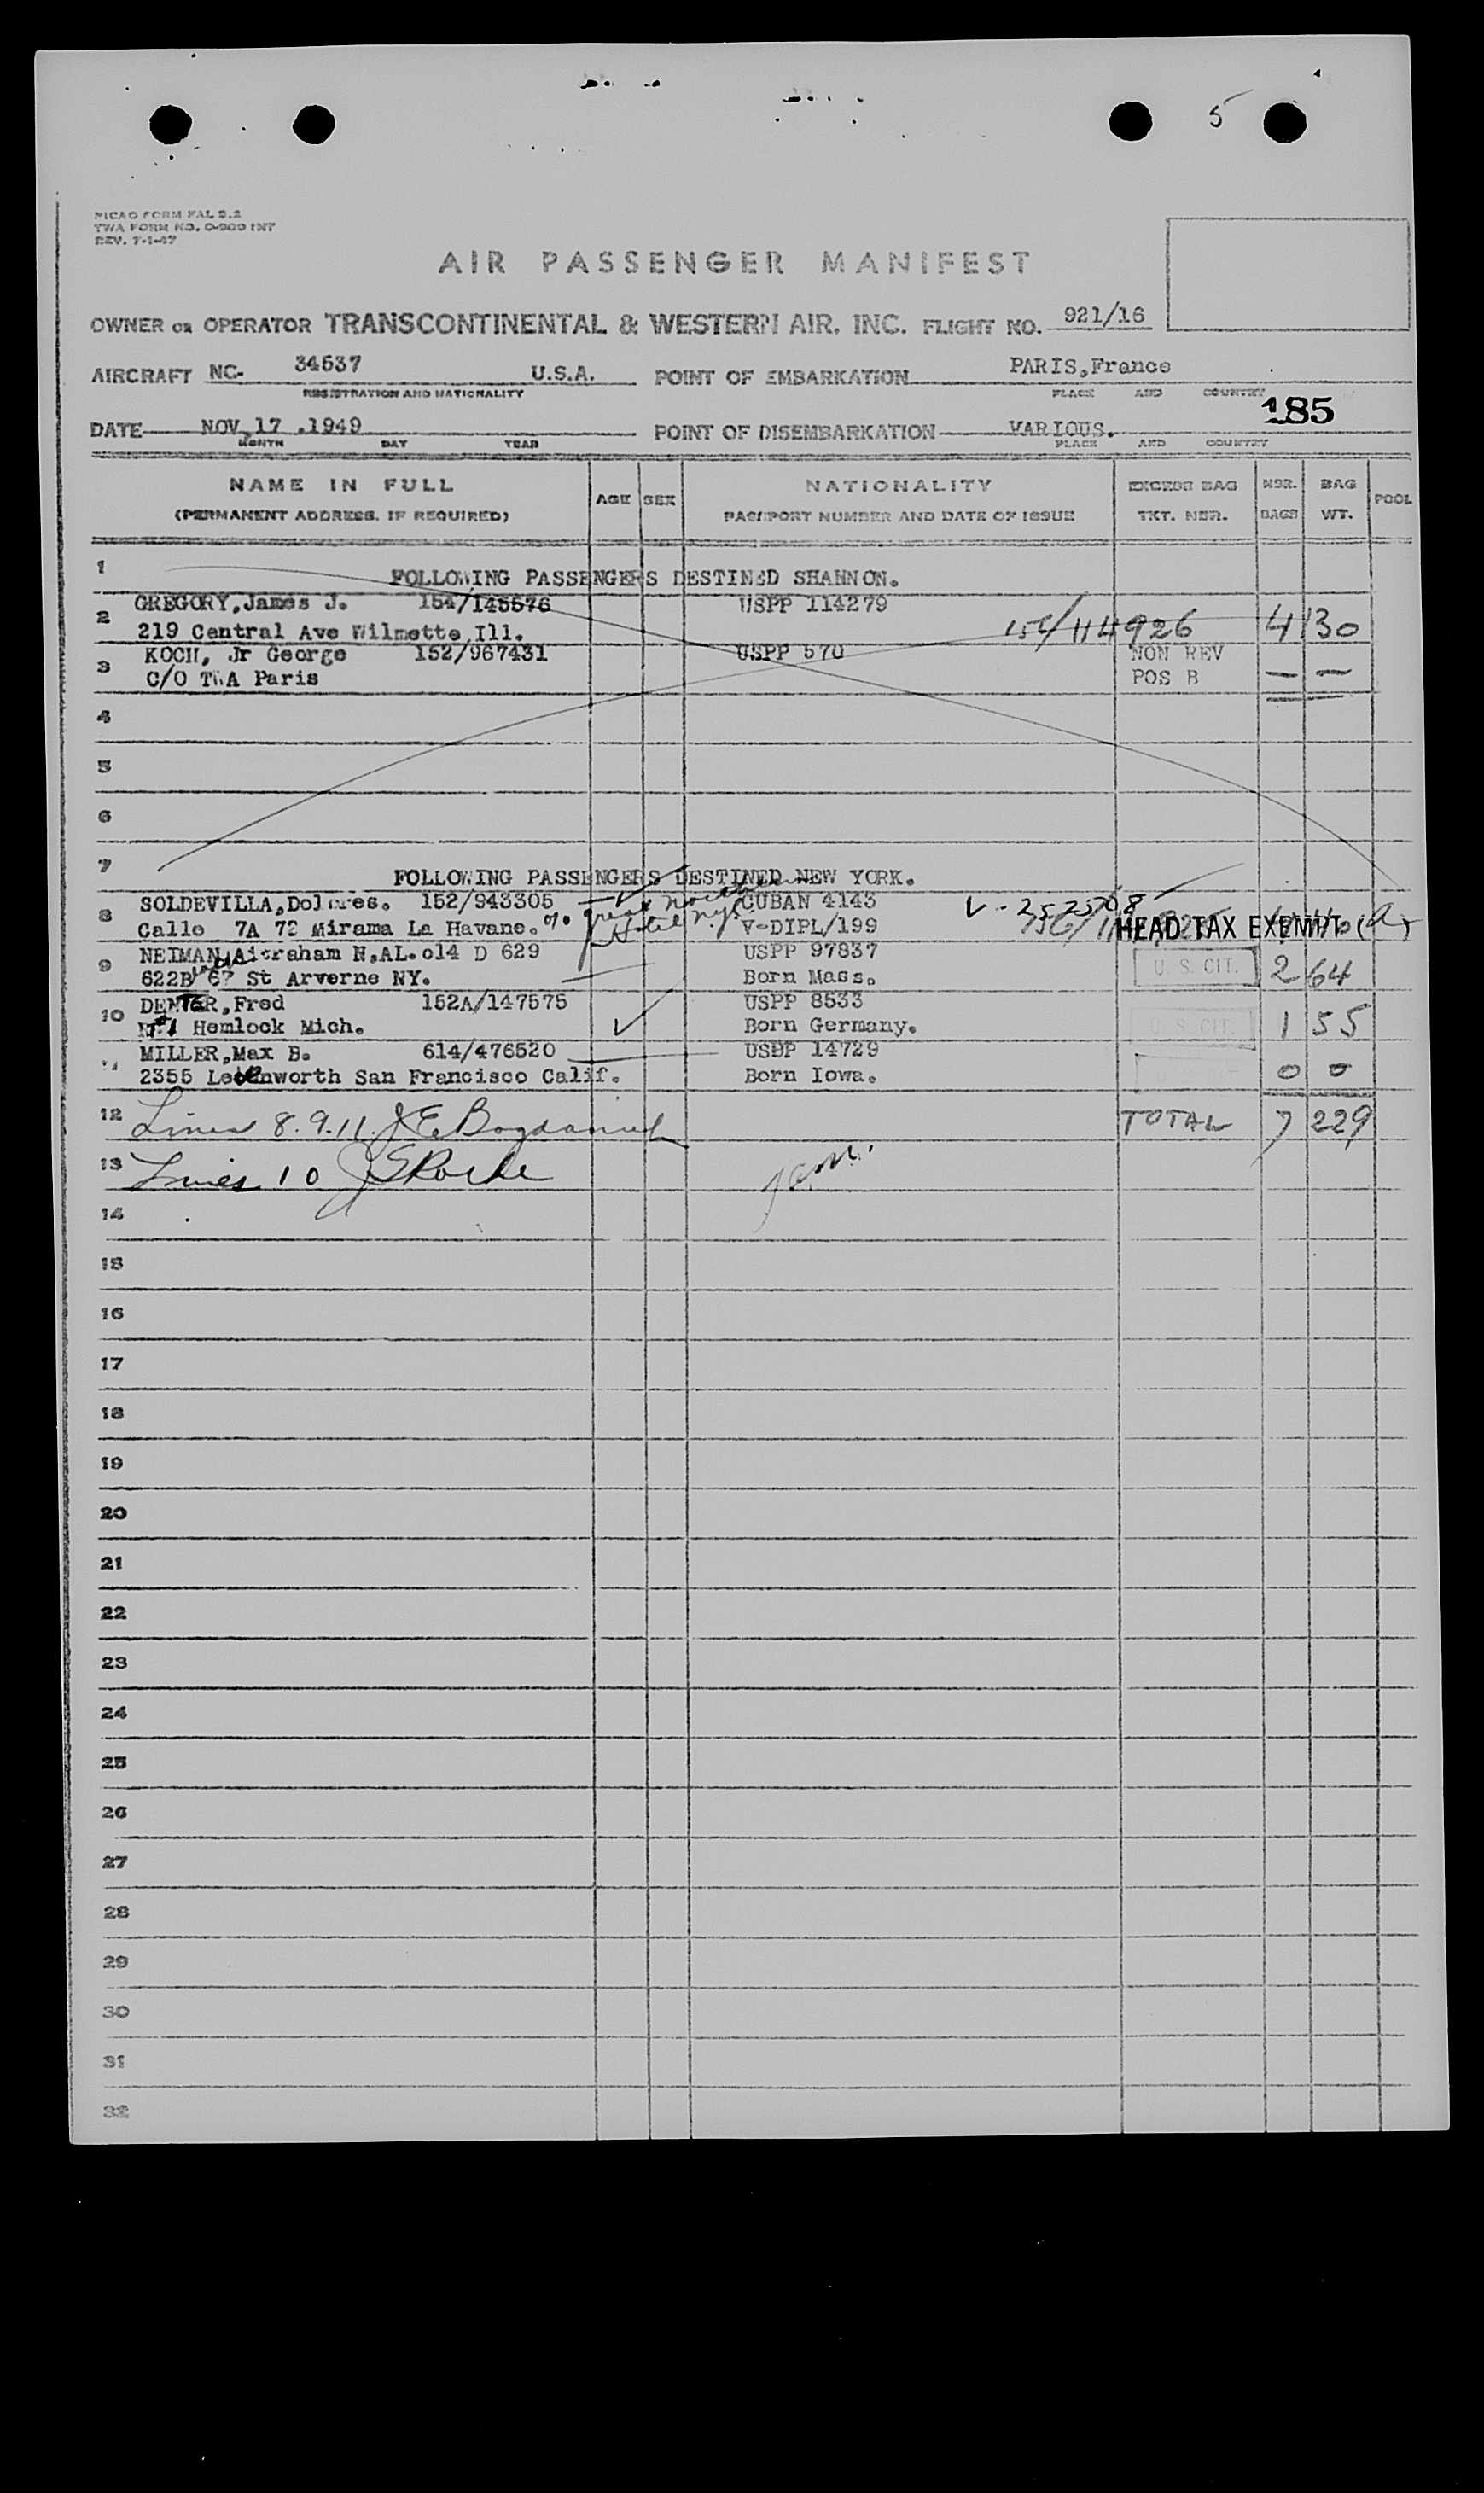 5
PICAO FORM FAL 2.2
TWA FORM NO. O-909 INT
REV. 7-1-47
AIR PASSENGER MANIFEST
OWNER OR OPERATOR TRANSCONTINENTAL & WESTERN AIR, INC. FLIGHT NO. 921/16
AIRCRAFT NC- 34537 U.S.A. POINT OF EMBARKATION PARIS,France
REGISTRATION AND NATIONALITY PLACE AND COUNTRY
185
DATE NOV,17 .1949 POINT OF DISEMBARKATION VARIOUS.
MONTH DAY YEAR PLACE AND COUNTRY
NAME IN FULL AGE SEX NATIONALITY EXCESS BAG NBR. BAG POOL
(PERMANENT ADDRESS, IF REQUIRED) PASSPORT NUMBER AND DATE OF ISSUE TKT. NBR. BAGS WT.
1 FOLLOWING PASSENGERS DESTINED SHANNON.
2 GREGORY,James J. 154/145576 USPP 114279
219 Central Ave Wilmette,Ill. 156/114926 4 130
3 KOCH, Jr George 152/967431 USPP 570 NON REV
C/O TWA Paris POS B — —
4
5
6
7 FOLLOWING PASSENGERS DESTINED NEW YORK.
8 SOLDEVILLA,Dolores. 152/943305 CUBAN 4143 V-
Calle 7A 72 Mirama La Havane. % great northern Hotel N.Y. V-DIPL/199 HEAD TAX EXEMPT (a)
9 NEIMAN, Abraham N,AL.o14 D 629 USPP 97837
622B 67 St Arverne NY. Born Mass. U. S. CIT. 2 64
10 DENTER,Fred 152A/147575 USPP 8533
#1 Hemlock Mich. Born Germany. U. S. CIT. 1 55
11 MILLER,Max B. 614/476520 USPP 14729
2355 Levenworth San Francisco Calif. Born Iowa. 0 0
12 Lines 8.9.11. J E Bogdaniel TOTAL 7 229
13 Lines 10 J S Roche
14
15
16
17
18
19
20
21
22
23
24
25
26
27
28
29
30
31
32